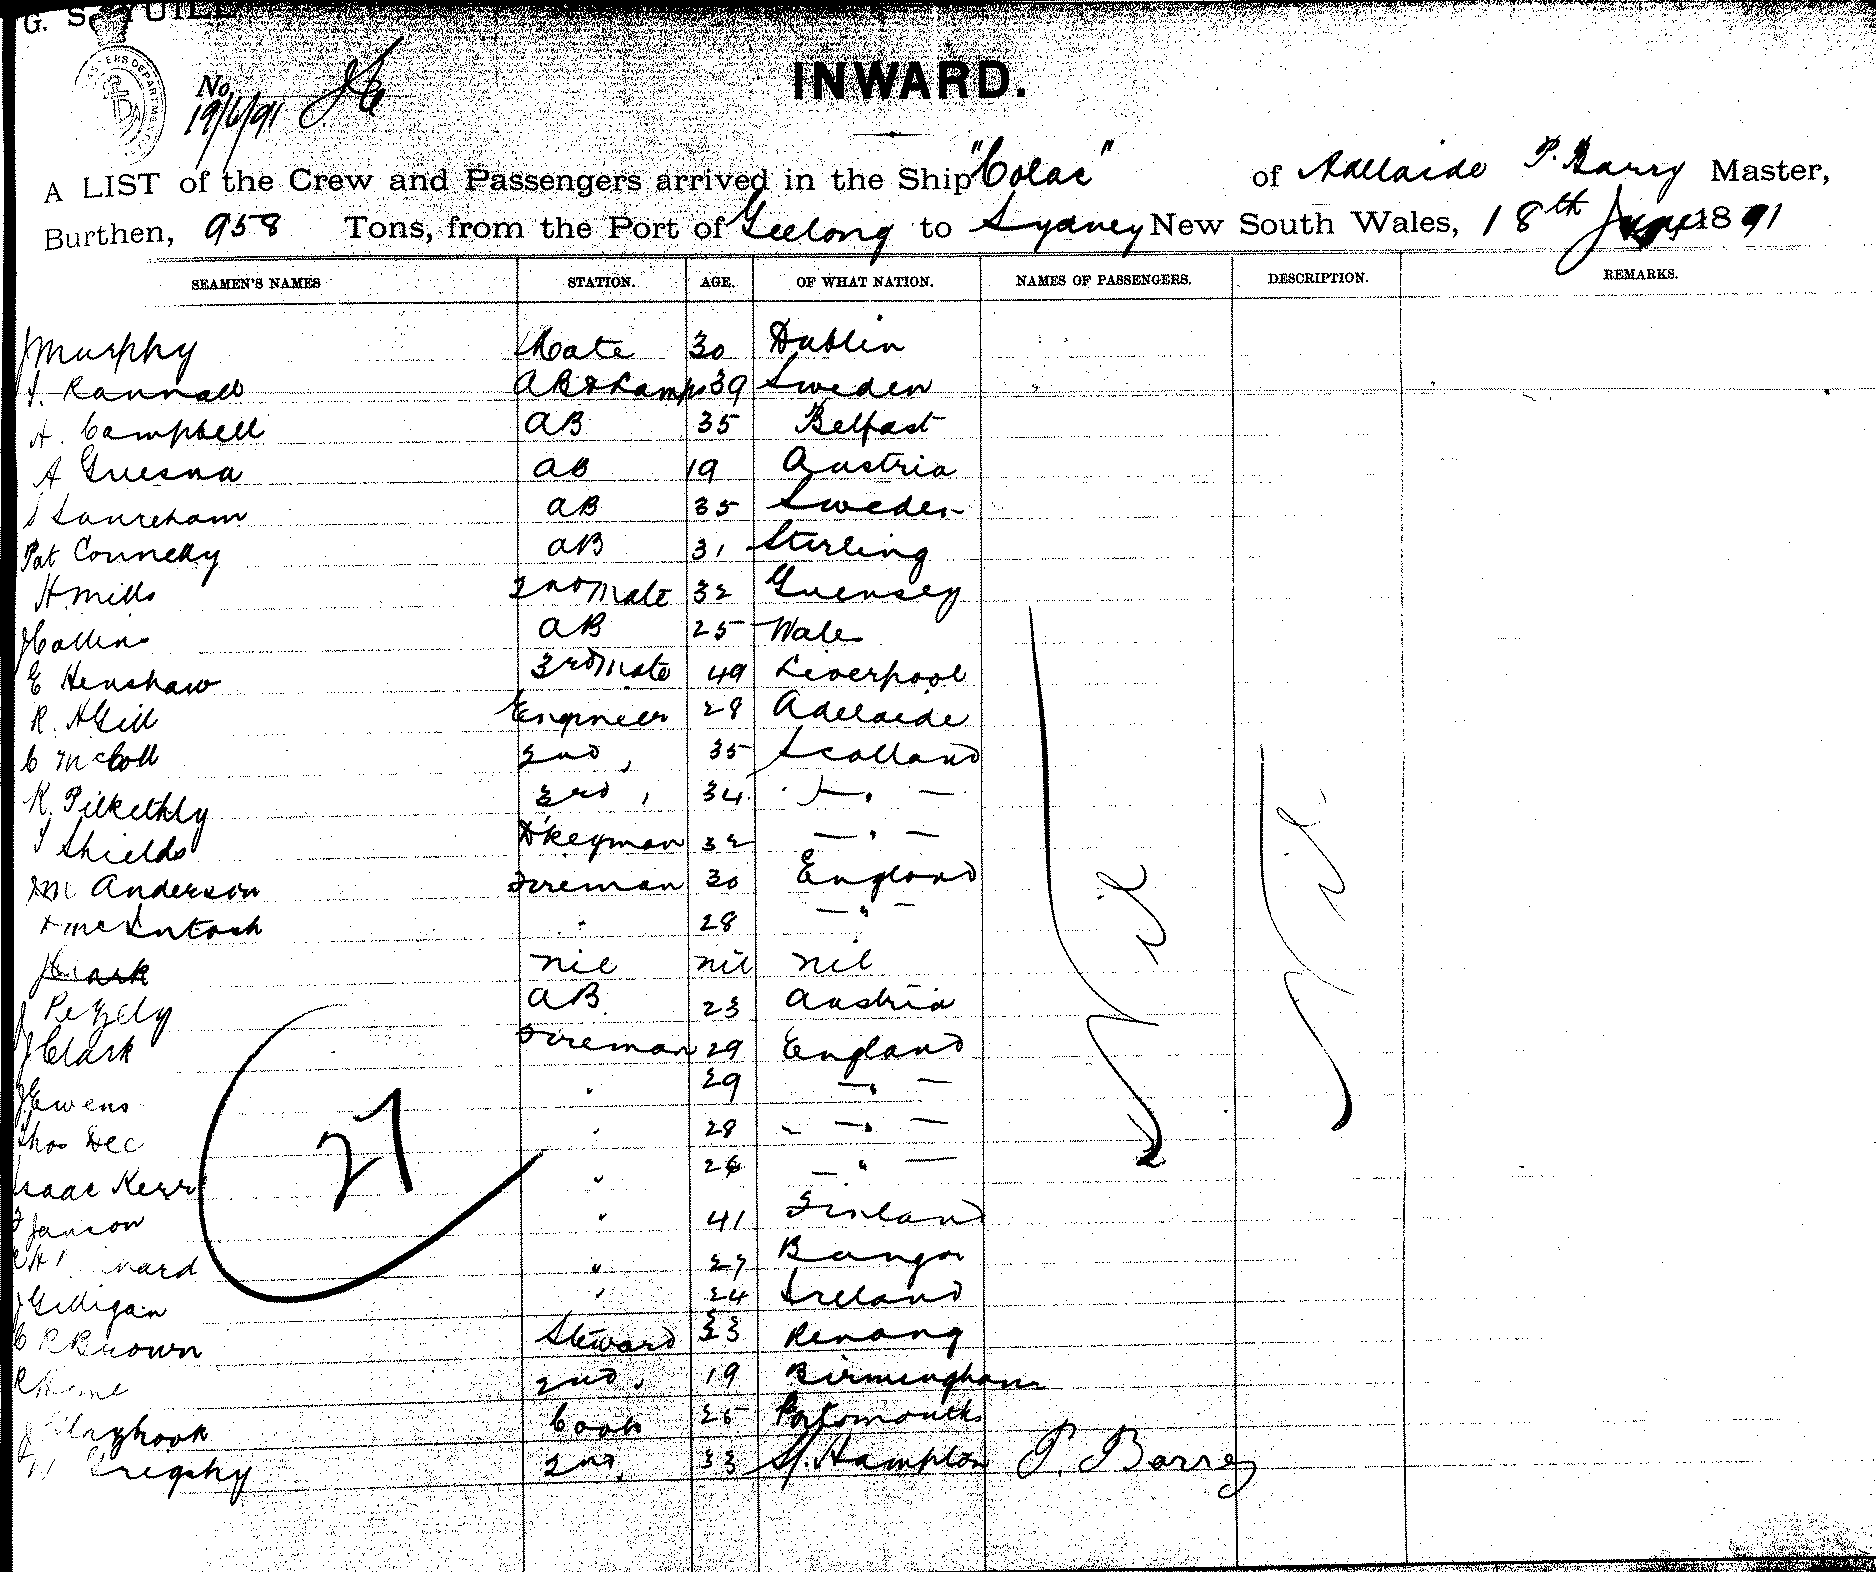 G. S. YUILL
No
19/6/91
INWARD.
A LIST of the Crew and Passengers arrived in the Ship "Colac" of Adelaide P. Barry Master,
Burthen, 958 Tons, from the Port of Geelong to Sydney New South Wales, 18th June 1891
SEAMEN'S NAMES STATION. AGE. OF WHAT NATION. NAMES OF PASSENGERS. DESCRIPTION. REMARKS.
J Murphy Mate 30 Dublin
Rannall AB & Lamps 39 Sweden
A. Campbell AB 35 Belfast
A Guesna AB 19 Austria
Laureham AB 35 Sweden
Pat Connelly AB 31 Stirling
H Mills 2nd Mate 32 Guernsey
J Collins AB 25 Wales
E Henshaw 3rd Mate 49 Liverpool
R. H Gill Engineer 28 Adelaide
C McColl 2nd , 35 Scotland
R. Pilkethly 3rd , 34 — " —
Shields D'keyman 32 — " —
Anderson Fireman 30 England
McIntosh " 28 — " —
J Clark nil nil nil
J Pezely AB. 23 Austria
J Clark Fireman 29 England
J Ewens " 29 — " —
Thos Dec " 28 " — " —
Isaac Kerr " 26 — " —
Janson " 41 Finland
ward " 27 Bangor
J Gilligan " 24 Ireland
C P Brown Steward 33 Penang
2nd , 19 Birmingham
Cook 25 Portsmouth
2nd , 33 S/. Hampton P. Barrey
Nil
Nil
27